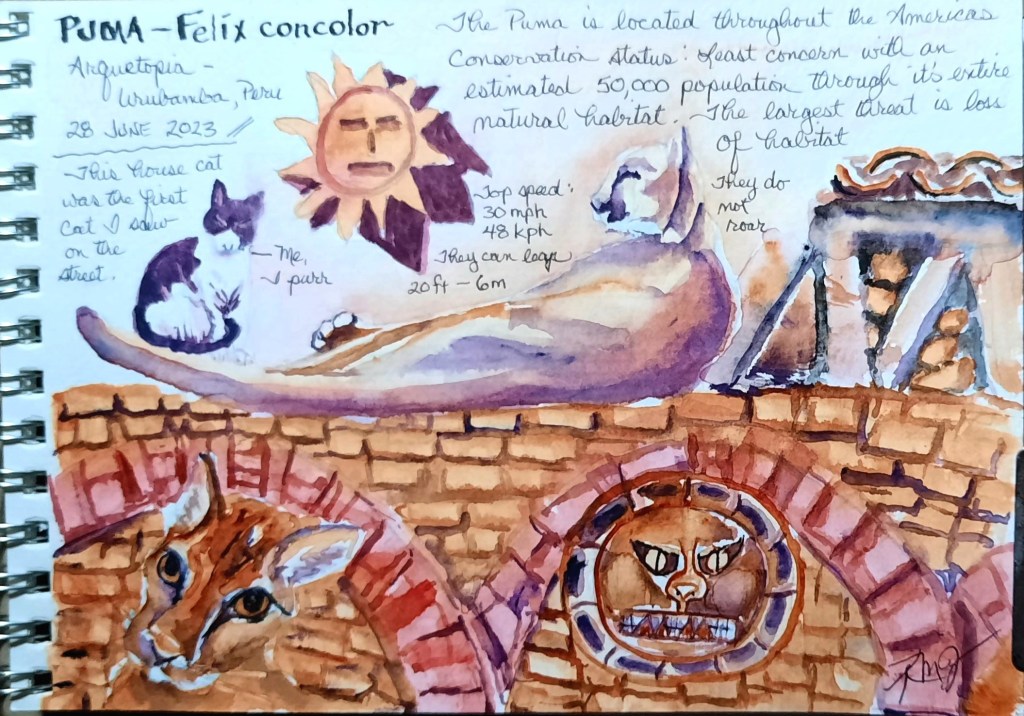 PUMA – Felix concolor
Arquetopia –
Urubamba, Peru
28 JUNE 2023
The Puma is located throughout the Americas
Conservation status: least concern with an
estimated 50,000 population through it's entire
natural habitat. The largest threat is loss
of habitat
This house cat
was the first
cat I saw
on the
street.
– Me,
I purr
Top speed:
30 mph
48 kph
They can leap
20 ft – 6m
They do
not
roar